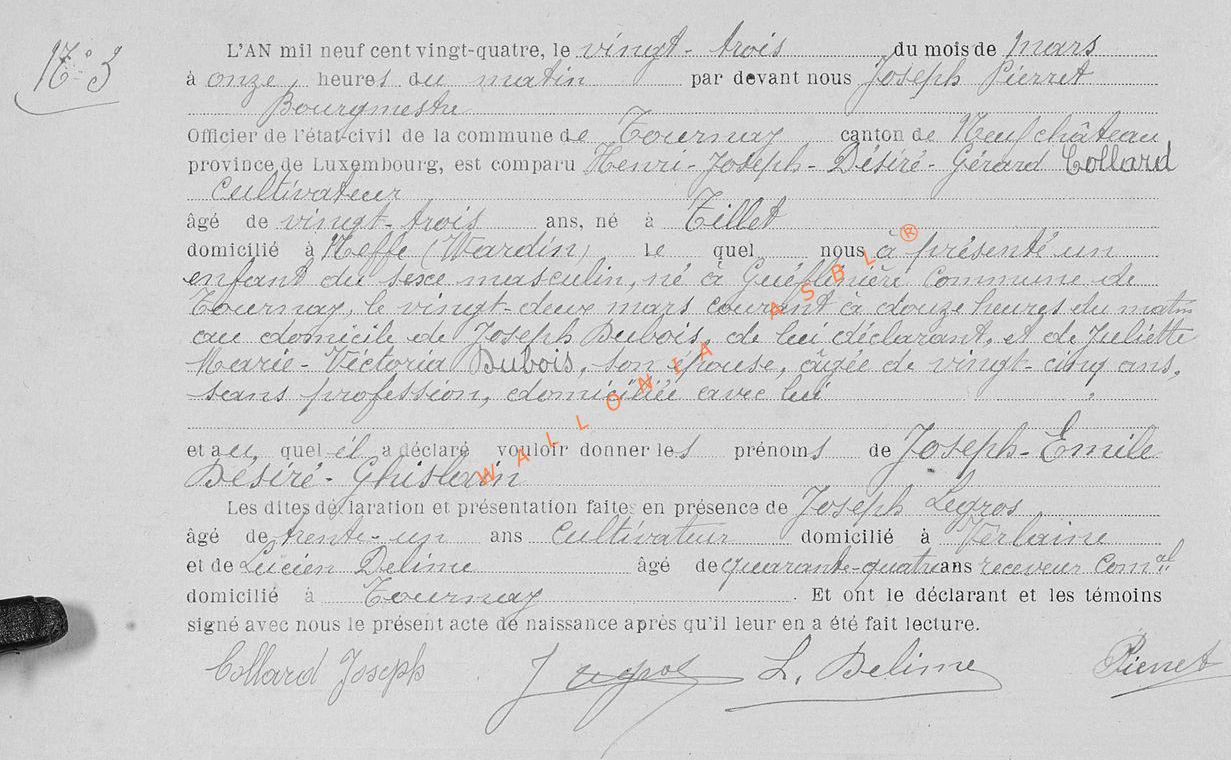 N° 3
L'AN mil neuf cent vingt-quatre, le vingt-trois du mois de mars
à onze heures du matin par devant nous Joseph Pierret
Bourgmestre
Officier de l'état-civil de la commune de Tournay canton de Neufchâteau
province de Luxembourg, est comparu Henri-Joseph-Désiré-Gérard Collard
cultivateur
âgé de vingt-trois ans, né à Tillet
domicilié à Neffe (Wardin) le quel nous à présenté un
enfant du sexe masculin, né à commune de
Tournay, le vingt-deux mars courant à douze heures du matin
au domicile de Joseph Dubois, de lui déclarant, et de Juliette
Marie-Victoria Dubois, son épouse, âgée de vingt-cinq ans,
sans profession, domiciliée avec lui
et au quel il a déclaré vouloir donner les prénoms de Joseph-Emile
Désiré-Ghislain
Les dites déclaration et présentation faites en présence de Joseph Legros
âgé de trente-un ans cultivateur domicilié à Verlaine
et de Lucien Delime âgé de quarante-quatre ans receveur Comal
domicilié à Tournay. Et ont le déclarant et les témoins
signé avec nous le présent acte de naissance après qu'il leur en a été fait lecture.
Collard Joseph J L. Delime Pierret
WALLONIA ASBL ®